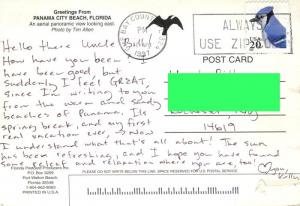 Greetings From
PANAMA CITY BEACH, FLORIDA
An aerial panoramic view looking east.
Photo by Tim Allen
BAY COUNTY
PM
1997
ALWAYS
USE ZIP
USA
20
POST CARD
Hello there Uncle
How have you been? I
have been good, but
Suddenly I feel GREAT,
since I'm writing to you
from the warm and sandy
beaches of Panama. Its
spring break, and my first
real vacation ever, so now
I understand what that's all about! The sun
has been refreshing, and I hope you have found
some relief and relaxation where you are, too!
Love,
Kelley
14619
P.O. Box 2659
Fort Walton Beach
Florida 32549
1-904-862-9083
PRINTED IN U.S.A.
PLEASE DO NOT WRITE BELOW THIS LINE. SPACE RESERVED FOR U.S. POSTAL SERVICE